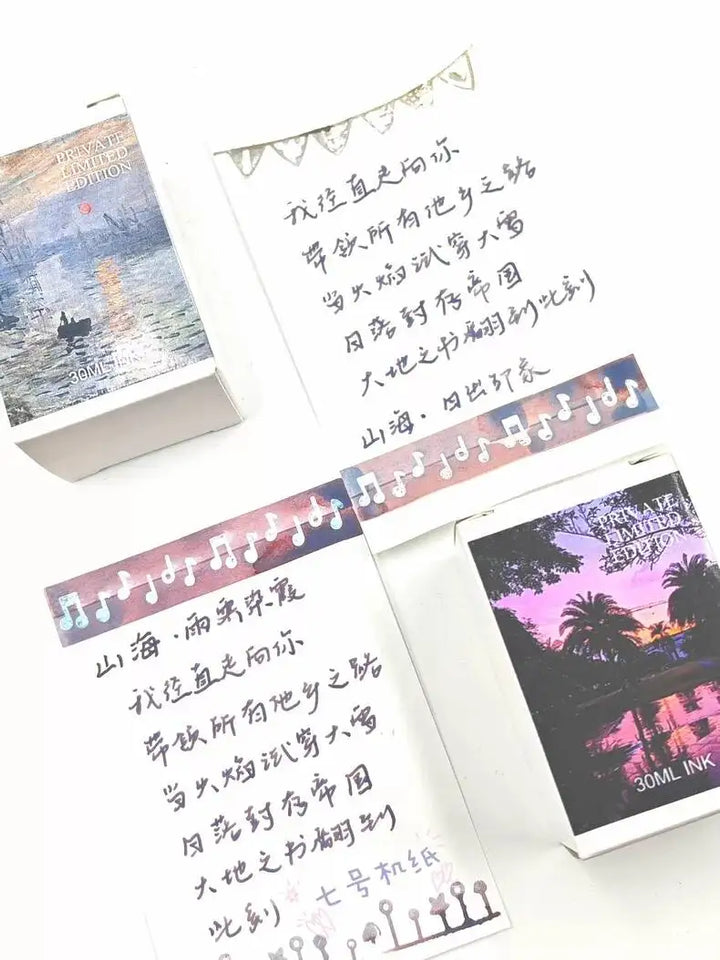 PRIVATE
LIMITED
EDITION
30ML INK
我径直走向你
带领所有他乡之路
当火焰试穿大雪
日落封存帝国
大地之书翻到此刻
山海·日出印象
PRIVATE
LIMITED
EDITION
30ML INK
山海·雨雾染霞
我径直走向你
带领所有他乡之路
当火焰试穿大雪
日落封存帝国
大地之书翻到
此刻
七号机纸